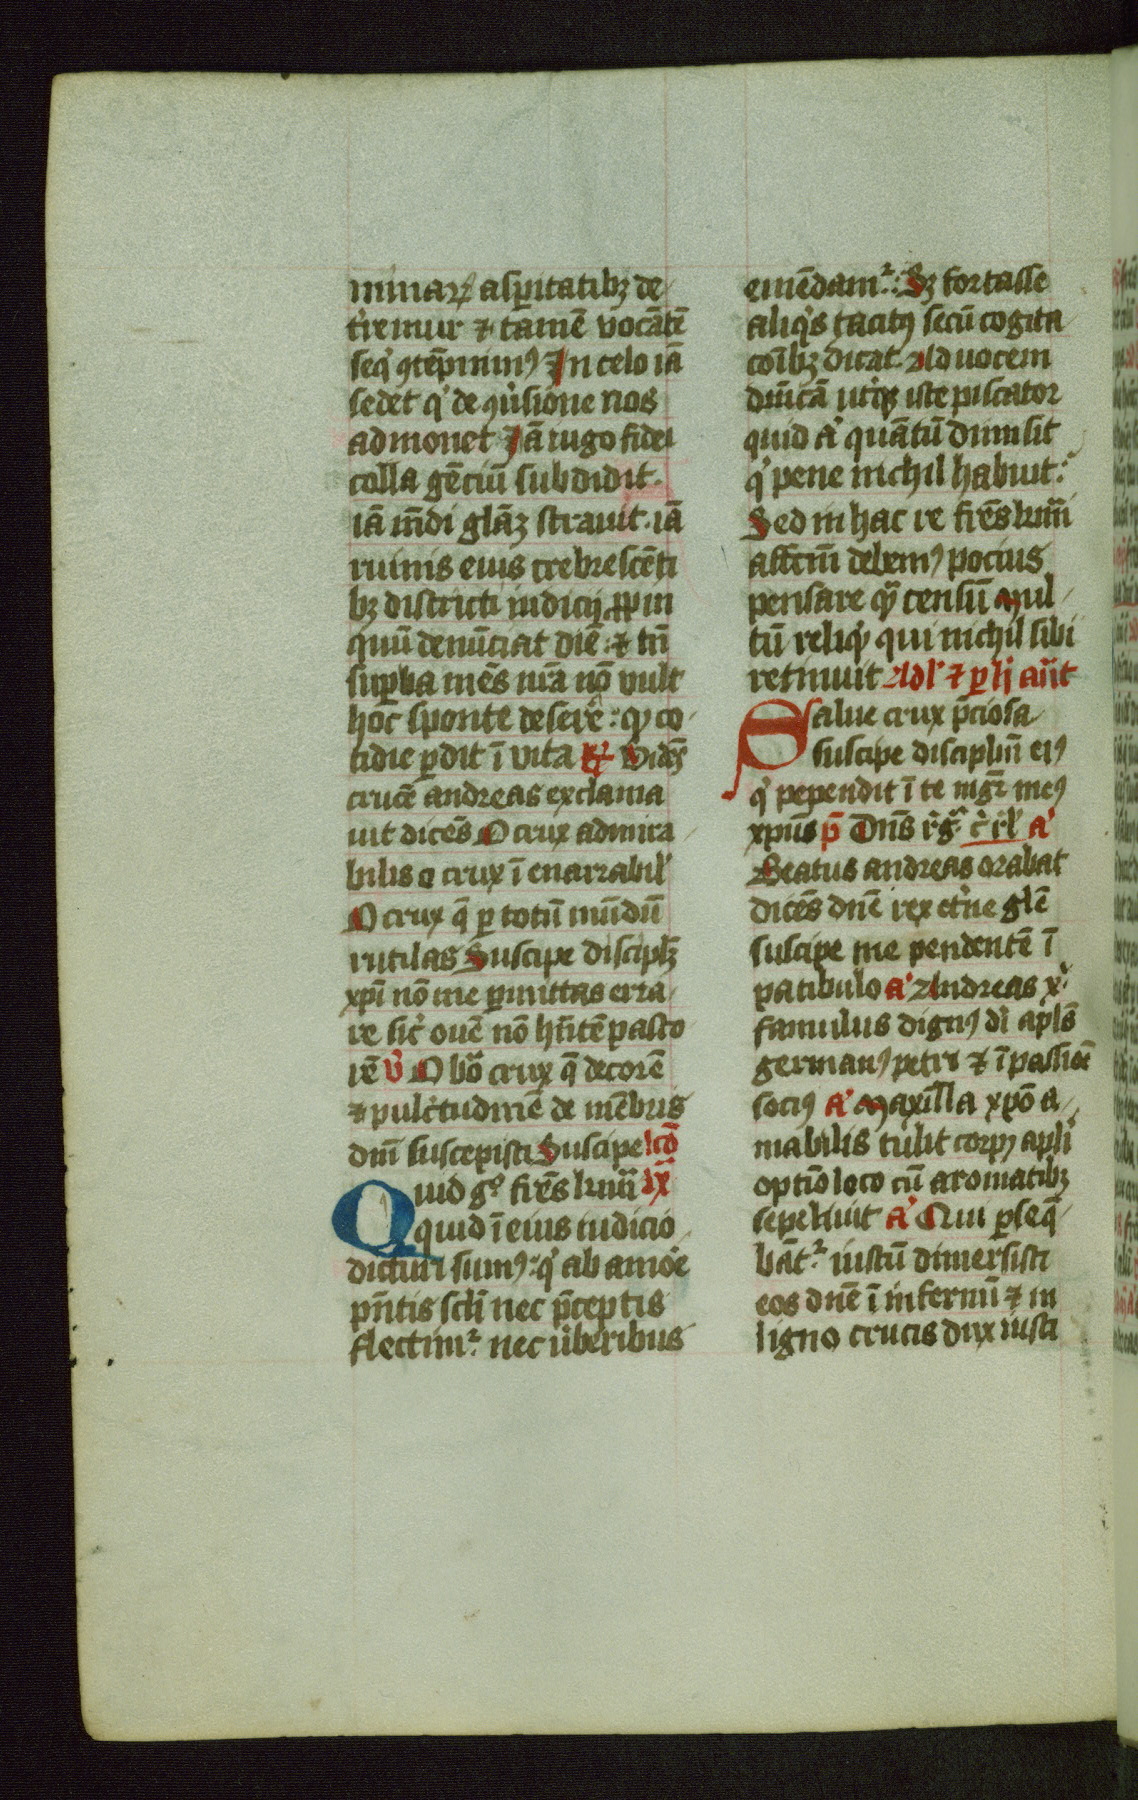 minarꝝ aspitatibꝫ de
tremur ⁊ tamē vocātē
seqͥ ꝯtēpnimꝰ In celo iā
sedet qͥ de ꝯuͥsione nos
admonet Jā iugo fidei
colla gēciū subdidit.
iā mͫdi glāꝫ strauit. iā
ruinis eius crebrescēti
bꝫ districti iudicij ꝓpin
quū denūciat diē. ⁊ tn̄
supba mēs nrā nō vult
hoc sponte deserē: qͥ co
tidie pdit ī vita R Vidēs
crucē andreas exclama
uit dicēs O crux admira
bilis o crux ī enarrabilˈ
O crux q̄ p totū mūdū
rutilas Suscipe disciplꝫ
xpi nō me pmittas erra
re sicͭ ouē nō hn̄tē pasto
rē V̄ O bōa crux q̄ decorē
⁊ pulcͥtudinē de mēbris
dnī suscepisti Suscipe lcō
Quid gͦ frēs krmi ix
quid ī eius iudicio
dicturi sumꝰ: qͥ ab amoͤe
pn̄tis sclī nec p̄ceptis
flectimͬ. nec ūberibus
emēdamͬ: Sꝫ fortasse
aliqͥs tacitꝰ secū cogita
coībꝫ dicat. Ad uocem
dnīcā utqͥꝫ iste piscator
quid aͧ quātū dimisit
qͥ pene nichil habuit:
Sed in hac re frēs krmi
affcm̄ debemꝰ pocius
pensare qͣ censū Mul
tū reliqͥ qui nichil sibi
retinuit Adlˈ ⁊ p hͥ ant
Salue crux p̄ciosa
suscipe disciplm̄ eiꝰ
qͥ pependit ī te mgr̄ meꝰ
xpūs p̄s Dn̄s rͥgͣ. cͥ rlˈ a
Beatus andreas orabat
dicēs dnē rex etͥne glē
suscipe me pendentē ī
patibulo a Andreas xͥ
famulus dignꝰ dī apls̄
germanꝰ petri ⁊ ī passiōe
sociꝰ a Maxilla xpō a
mabilis tulit corpꝰ apli
optīo loco cū aromatibꝫ
sepeliuit a Qui pseqͤ
bātͬ iustū dimersisti
eos dnē ī infernū ⁊ in
ligno crucis dux iusti